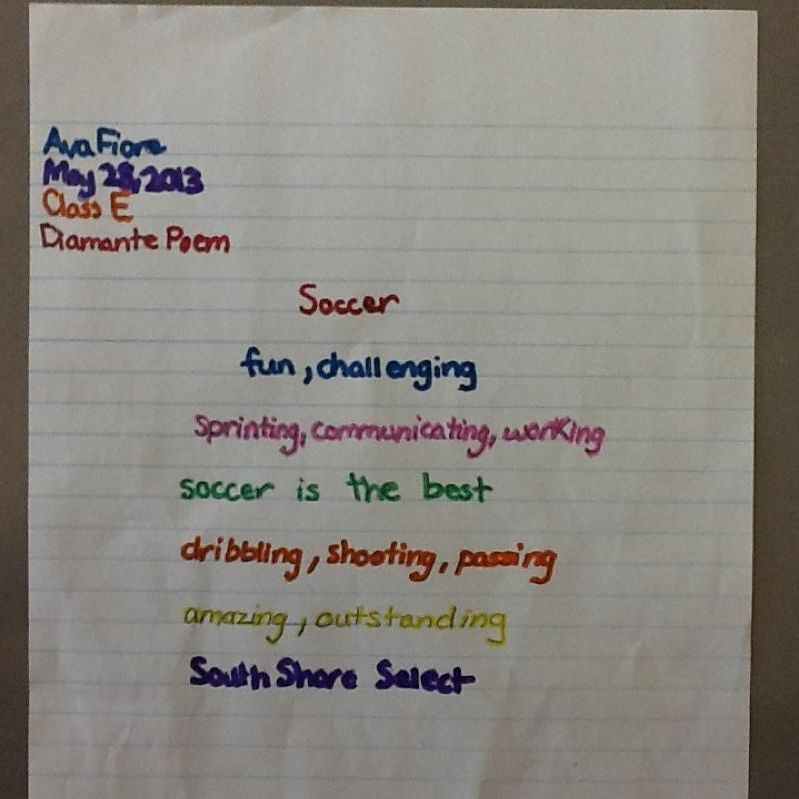 Ava Fiore
May 28, 2013
Class E
Diamante Poem
Soccer
fun, challenging
Sprinting, communicating, working
soccer is the best
dribbling, shooting, passing
amazing, outstanding
South Shore Select